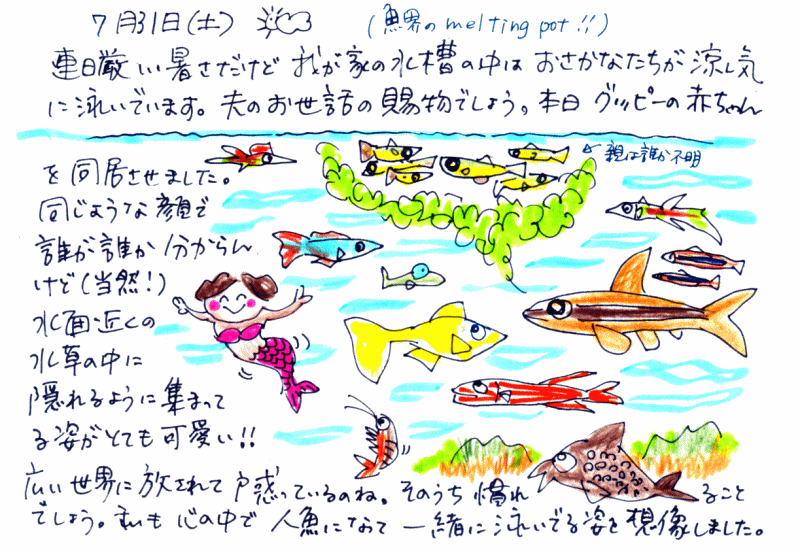 7月31日(土)
(魚界のmelting pot!!)
連日厳しい暑さだけど 我が家の水槽の中は おさかなたちが涼し気
に泳いでいます。夫のお世話の賜物でしょう。本日 グッピーの赤ちゃん
←親は誰か不明
を同居させました。
同じような顔で
誰が誰か分からん
けど(当然!)
水面近くの
水草の中に
隠れるように集まって
る姿がとても可愛い!!
広い世界に放されて戸惑っているのね。そのうち慣れ ること
でしょう。私も心の中で人魚になって一緒に泳いでる姿を想像しました。